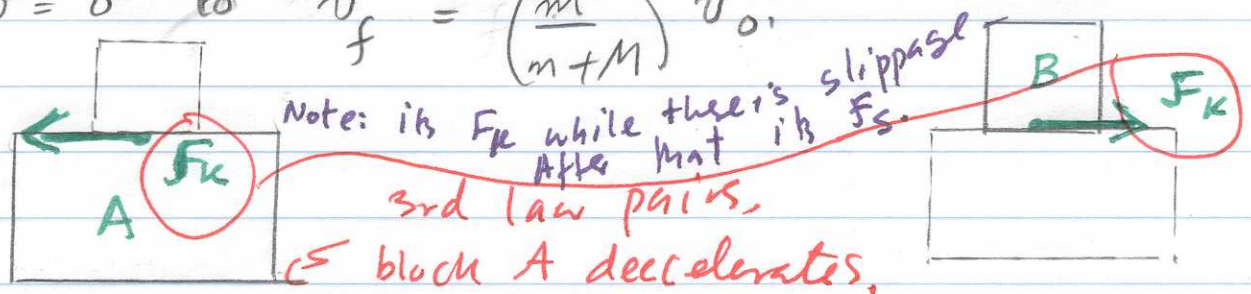 = 0 to v_f = (m/m+M) v_o.
Note: its F_k while there's slippage
After that its F_s.
F_k
A
B
F_k
3rd law pairs.
block A deccelerates.